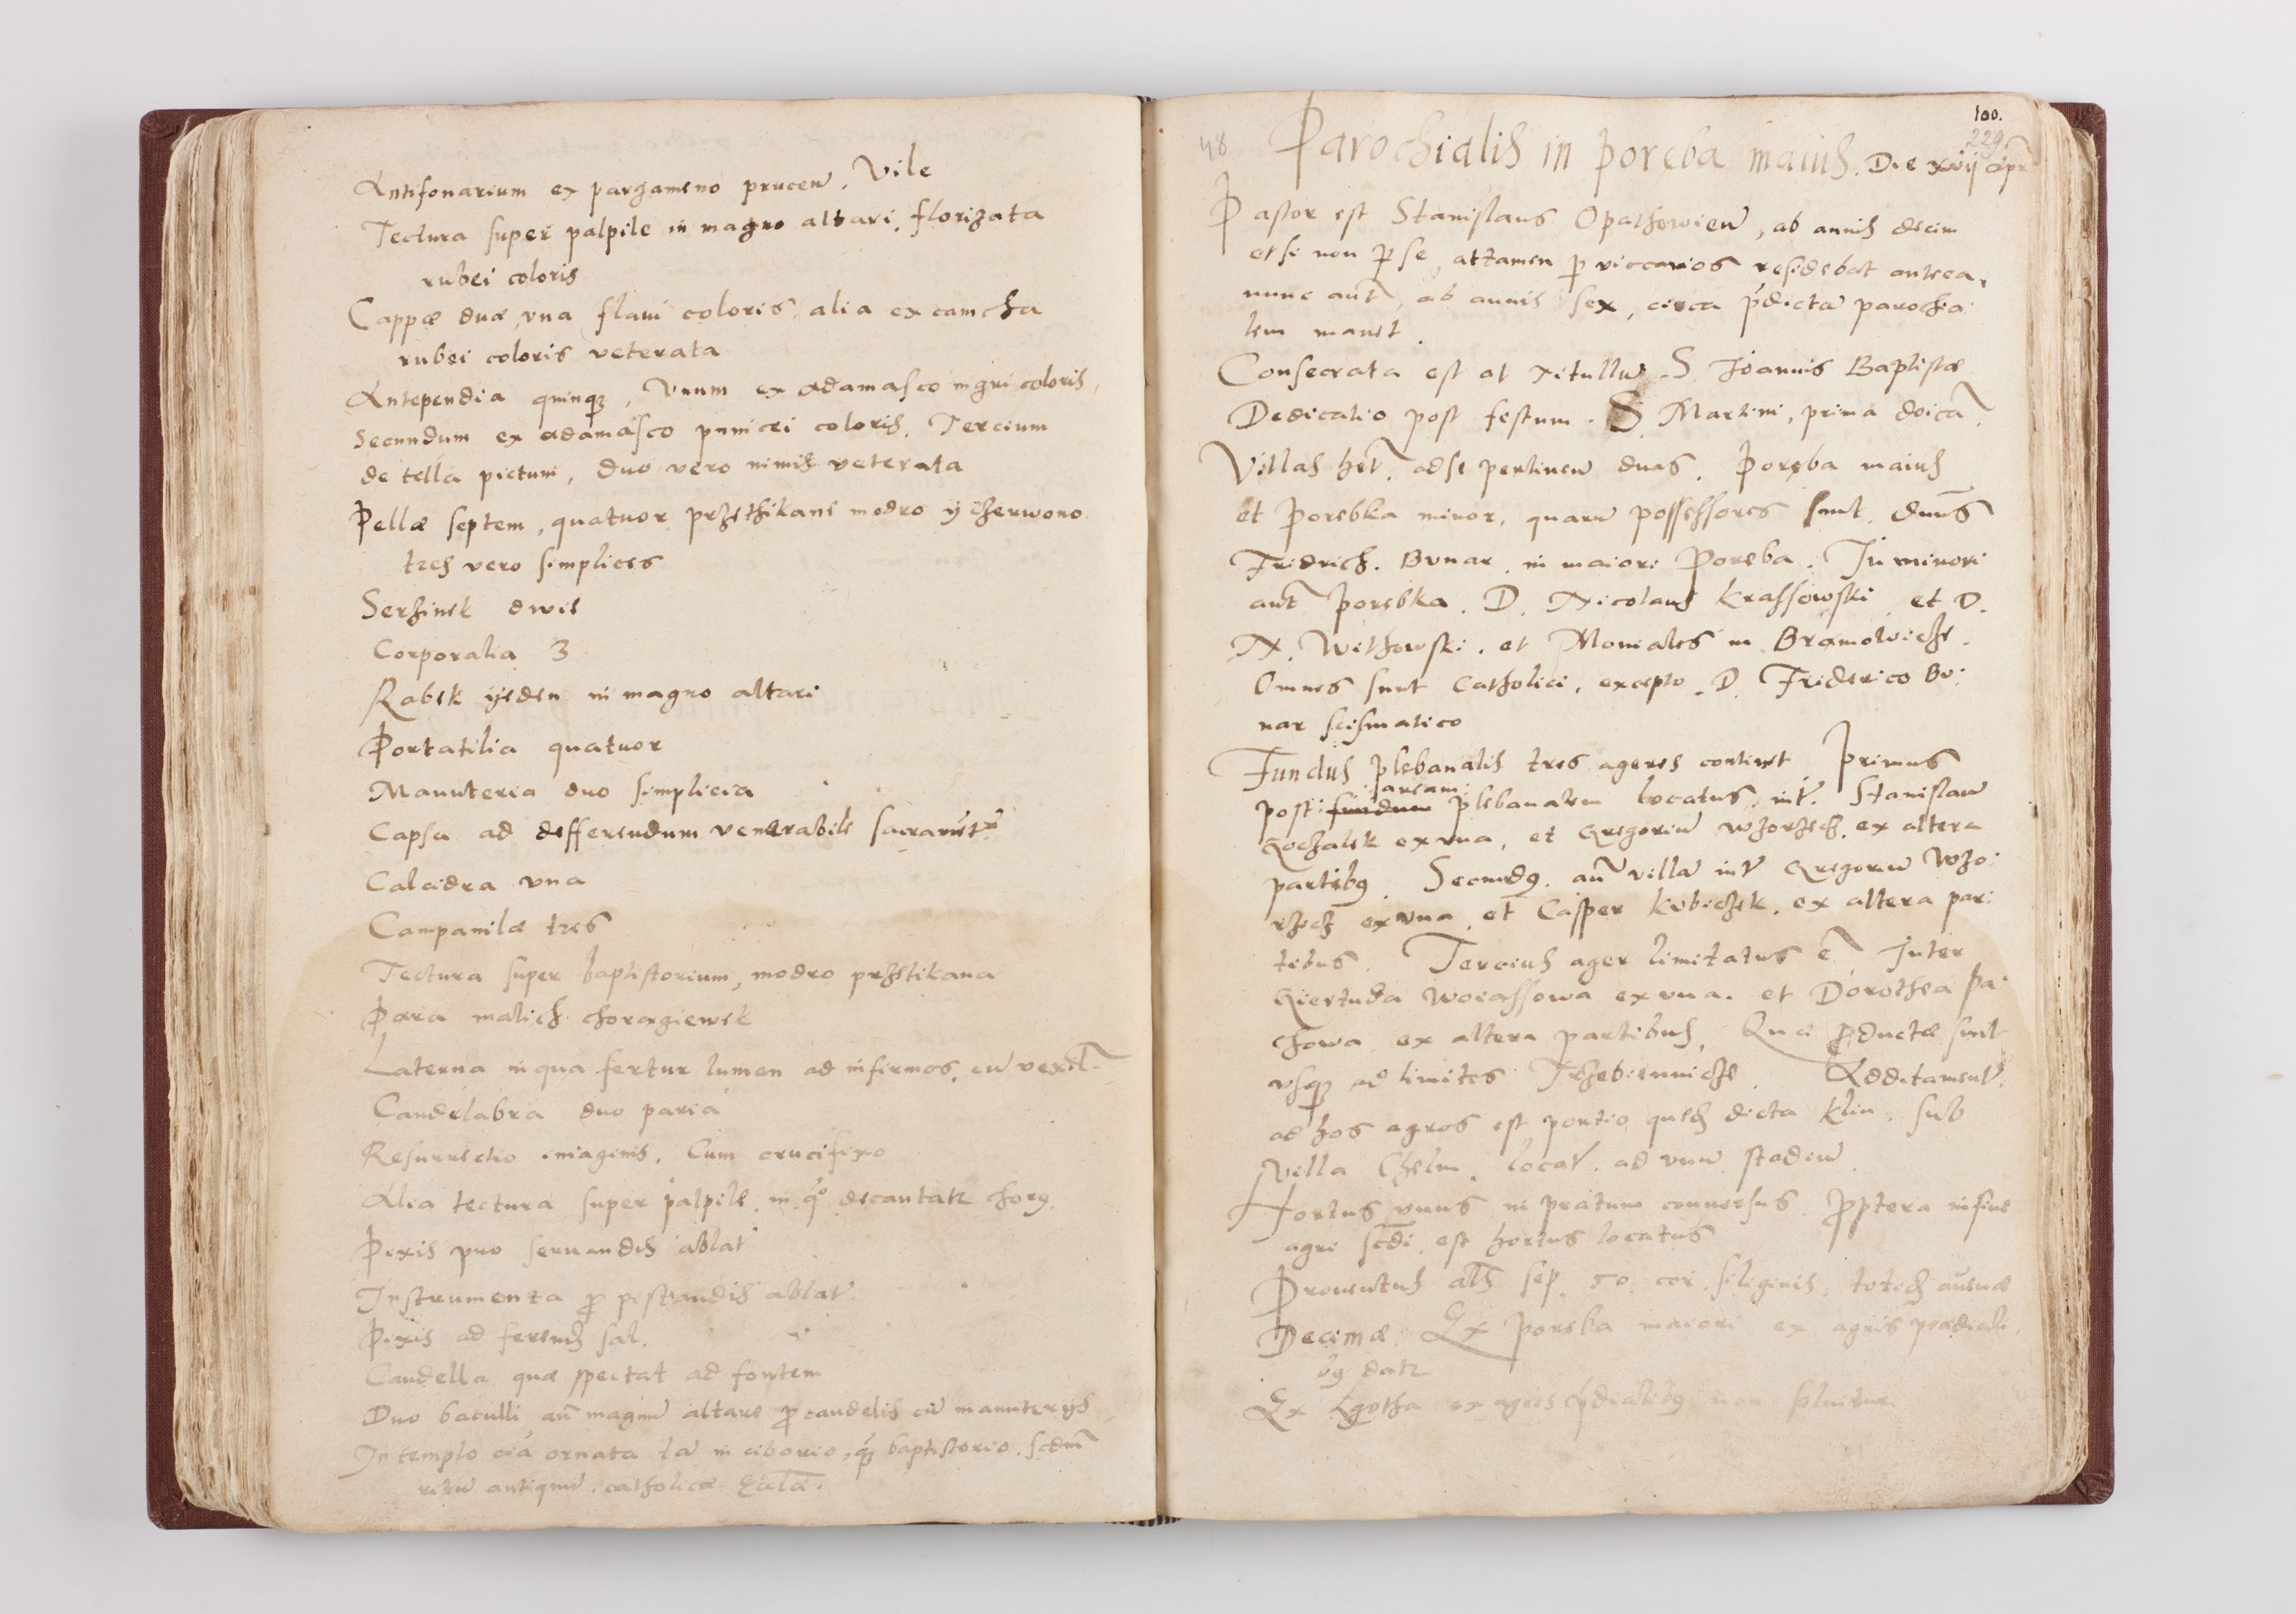 Antifonarium ex pargameno prucen̄. Vile
Tectura super palpile in magno altari, florizata
rubei coloris
Cappæ duæ, vna flaui coloris, alia ex camcha
rubei coloris veterata
Antependia quinqȝ, Vnum ex adamasco nigri coloris,
Secundum ex adamasco punicei coloris. Tercium
de tella pictum, duo vero nimis veterata
Pellæ septem, quatuor przethikane modro y czerwono
tres vero simplices
Serzinek dwie
Corporalia 3
Rabek yeden in magno altari
Portatilia quatuor
Manuteria duo simplicia
Capsa ad defferendum venerabile
Calcidra vna
Campanilæ tres
Tectura super baptistorium, modro przetikana
Para malich choragiewek
Laterna in qua fertur lumen ad infirmos, cū vexil
Candelabra duo paria
Resurrectio imaginis, Cum crucifixo
Alia tectura super palpile, in q̊ decantatr chorꝯ
Pixis pro seruandis ablat
Instrumenta ꝓ pistandis ablat
Pixis ad ferend sal.
Candella quæ spectat ad fontem
Duo baculli an̄ magnū altare ꝓ candelis cū manuterijs
In templo oīa ornata tā in ciborio, qȝ baptistorio, scdm
ritū antiquū catholicæ
100.
229
48 Parochialis in Poręba maius. Die xvij apr
Pastor est Stanislaus Opathowien̄, ab annis decem
etsi non ꝑ se, attamen ꝑ viccarios residebat antea,
nunc aut̄, ab annis sex, circa p̄dictā parochia
lem manet.
Consecrata est at titullū S. Joannis Baptistæ
Dedicatio post festum S. Martini, prima doīca
Villas het, ad se pertinen̄ duas, Poręba maius
et Porebka minor, quarū possessores sunt, dnus
Fridrich. Bonar, in maiori Poręba. In minori
aut̄ Porębka, D. Nicolaus Krassowski et D.
N. Wethowski, et Moniales in Bramolwicze.
Omnes sunt Catholici, excepto D. Friderico Bo
nar scismatico
Fundus plebanalis tres ageres continet Primus
aream
post fundum plebanalem locatus int̄. Stanislaū
Gochalek ex vna, et Gregoriū wzorzech, ex altera
partibꝯ. Secundꝯ an̄ villā int̄ Gregoriū Wzo
rzech ex vna, et Casper Kubiczek, ex altera par
tibus. Tercius ager limitatus ē Inter
Giertuda Wocassowa ex vna, et Dorothea Pa
chowa ex altera partibus, Quæ ꝓductæ sunt
vsqȝ ad limites Trzebiennicze. Additament
ad hos agros est portio quedā dicta Klin, sub
villa Chelm, locat ad vnū stadiū.
Hortus vnus in pratum conuersus, ꝓptera in fine
agri scdi est hortus locatus
Prouentus als sep. 50 cor. siliginis, totidē auenæ
Decimæ Ex Poręba maiori ex agris prædiali
bꝯ datr
Ex Lgotha ex agris p̄dialibꝯ non soluitur